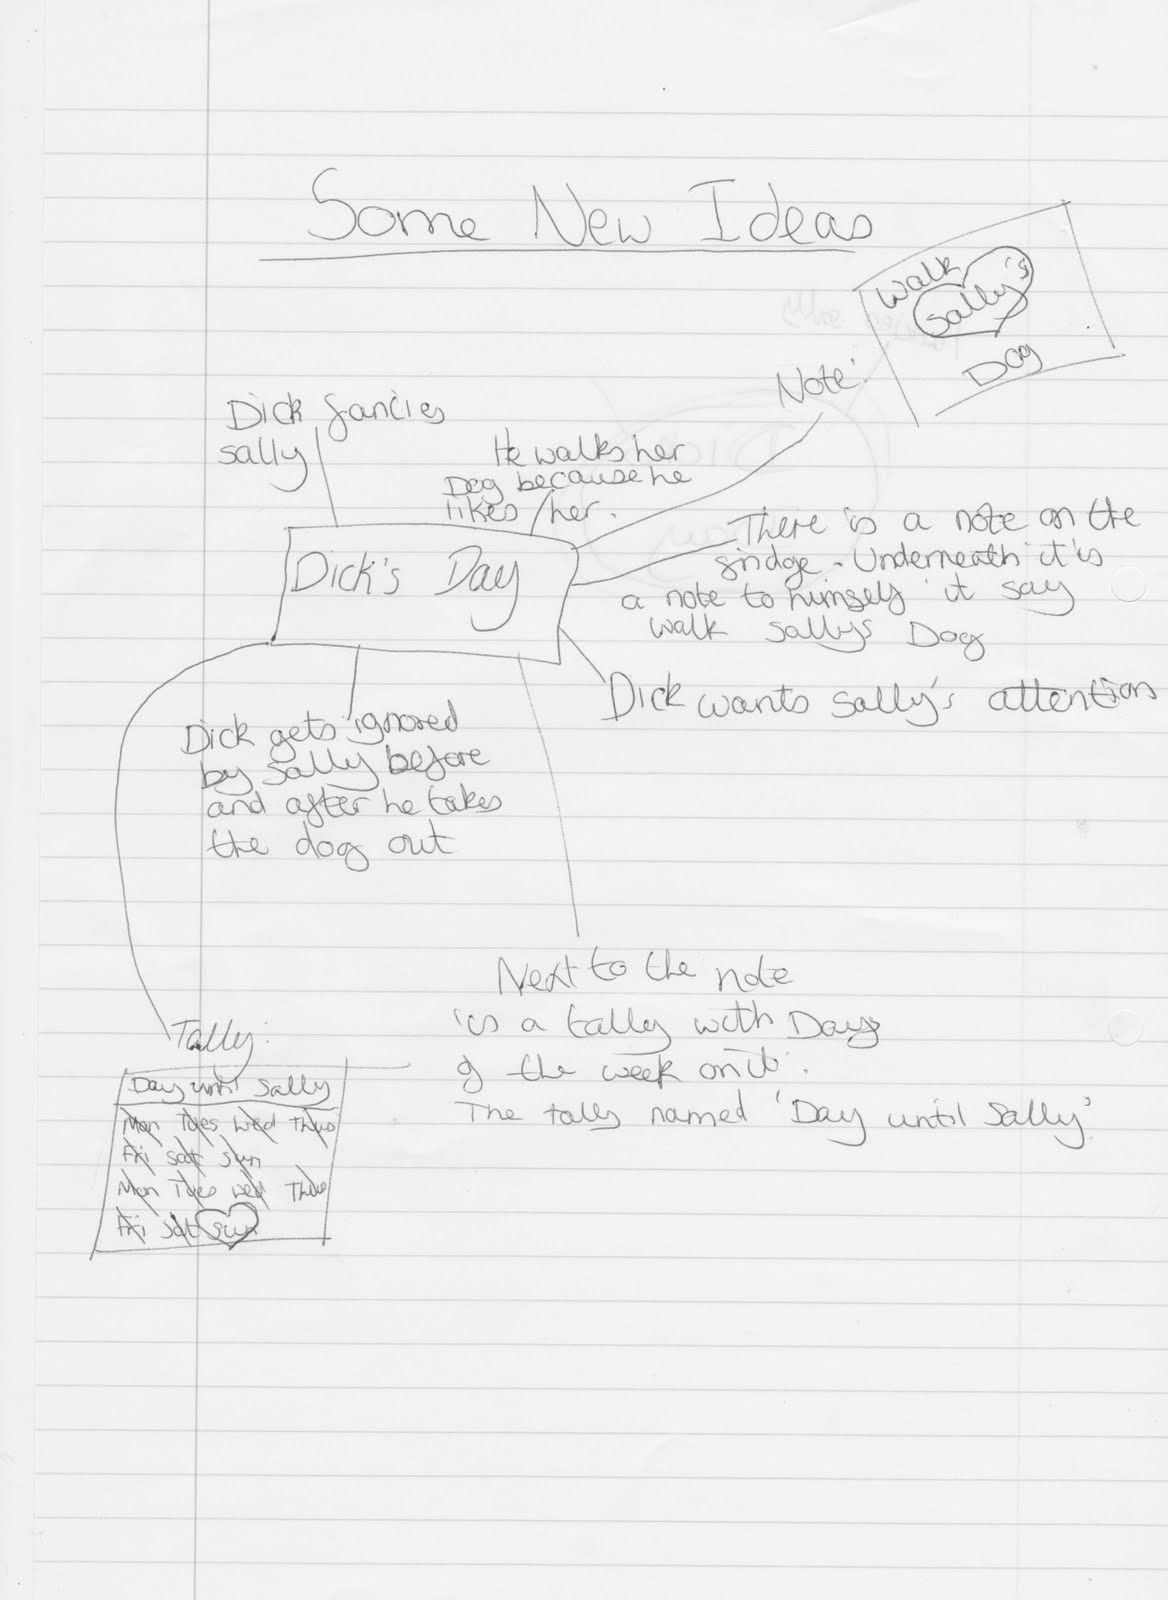 Some New Ideas
Walk
Sally's
Dog
Note:
Dick fancies
sally
He walks her
Dog because he
likes her.
Dick's Day
There is a note on the
fridge. Underneath it is
a note to himself it say
walk sallys Dog
Dick wants sally's attention
Dick gets ignored
by sally before
and after he takes
the dog out
Next to the note
is a tally with Days
of the week on it.
The tally named 'Day until Sally'
Tally:
Day until Sally
Mon Tues wed Thus
Fri sat sun
Mon Tues wed Thus
Fri sat sun